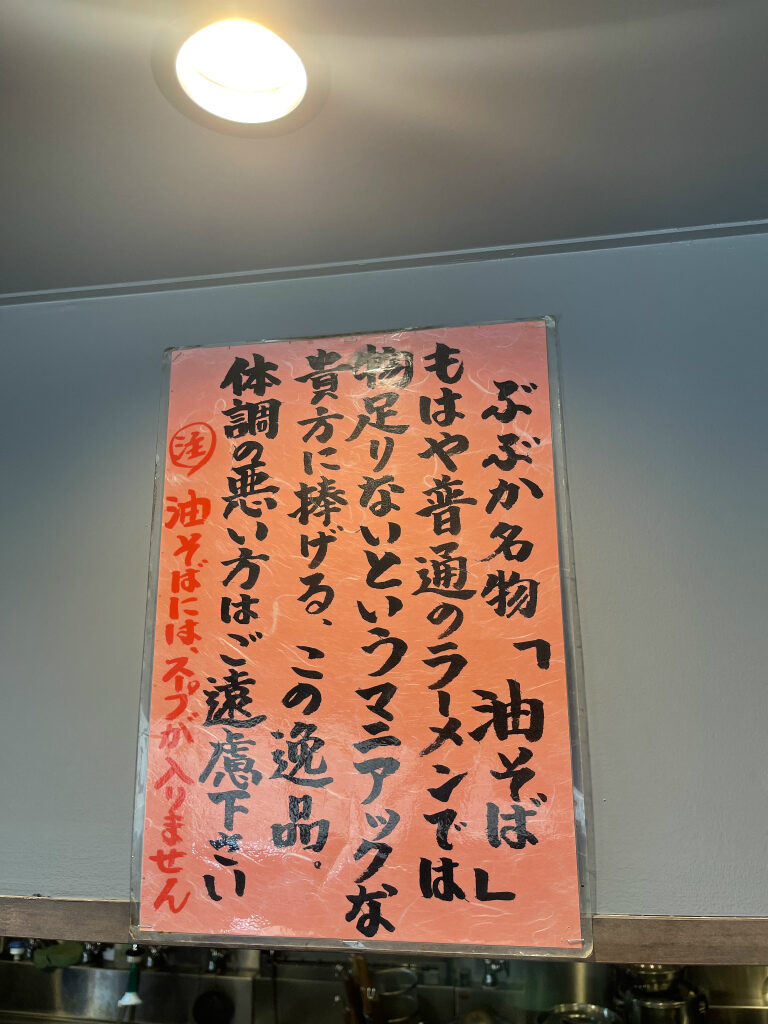 ぶぶか名物「油そば」
もはや普通のラーメンでは
物足りないというマニアックな
貴方に捧げる、この逸品。
体調の悪い方はご遠慮下さい
注 油そばには、スープが入りません